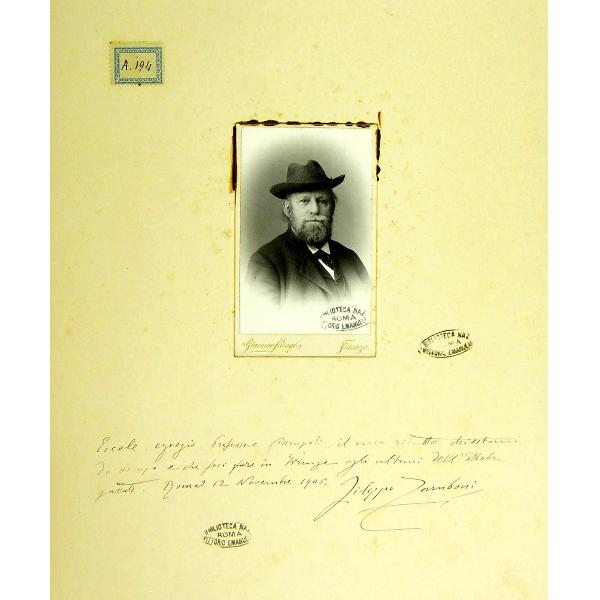 A. 194
BIBLIOTECA NAZ
ROMA
VITTORIO EMANUELE
Giacomo Brogi Firenze
BIBLIOTECA NAZ
VITTORIO EMANUELE
Eccole, egregio Professore, il mio ritratto
da e che feci fare in Firenze agli ultimi dell'Ottobre
passato. Roma 12 Novembre 1905. Filippo Zamboni
BIBLIOTECA NA
ROMA
VITTORIO EMANUELE